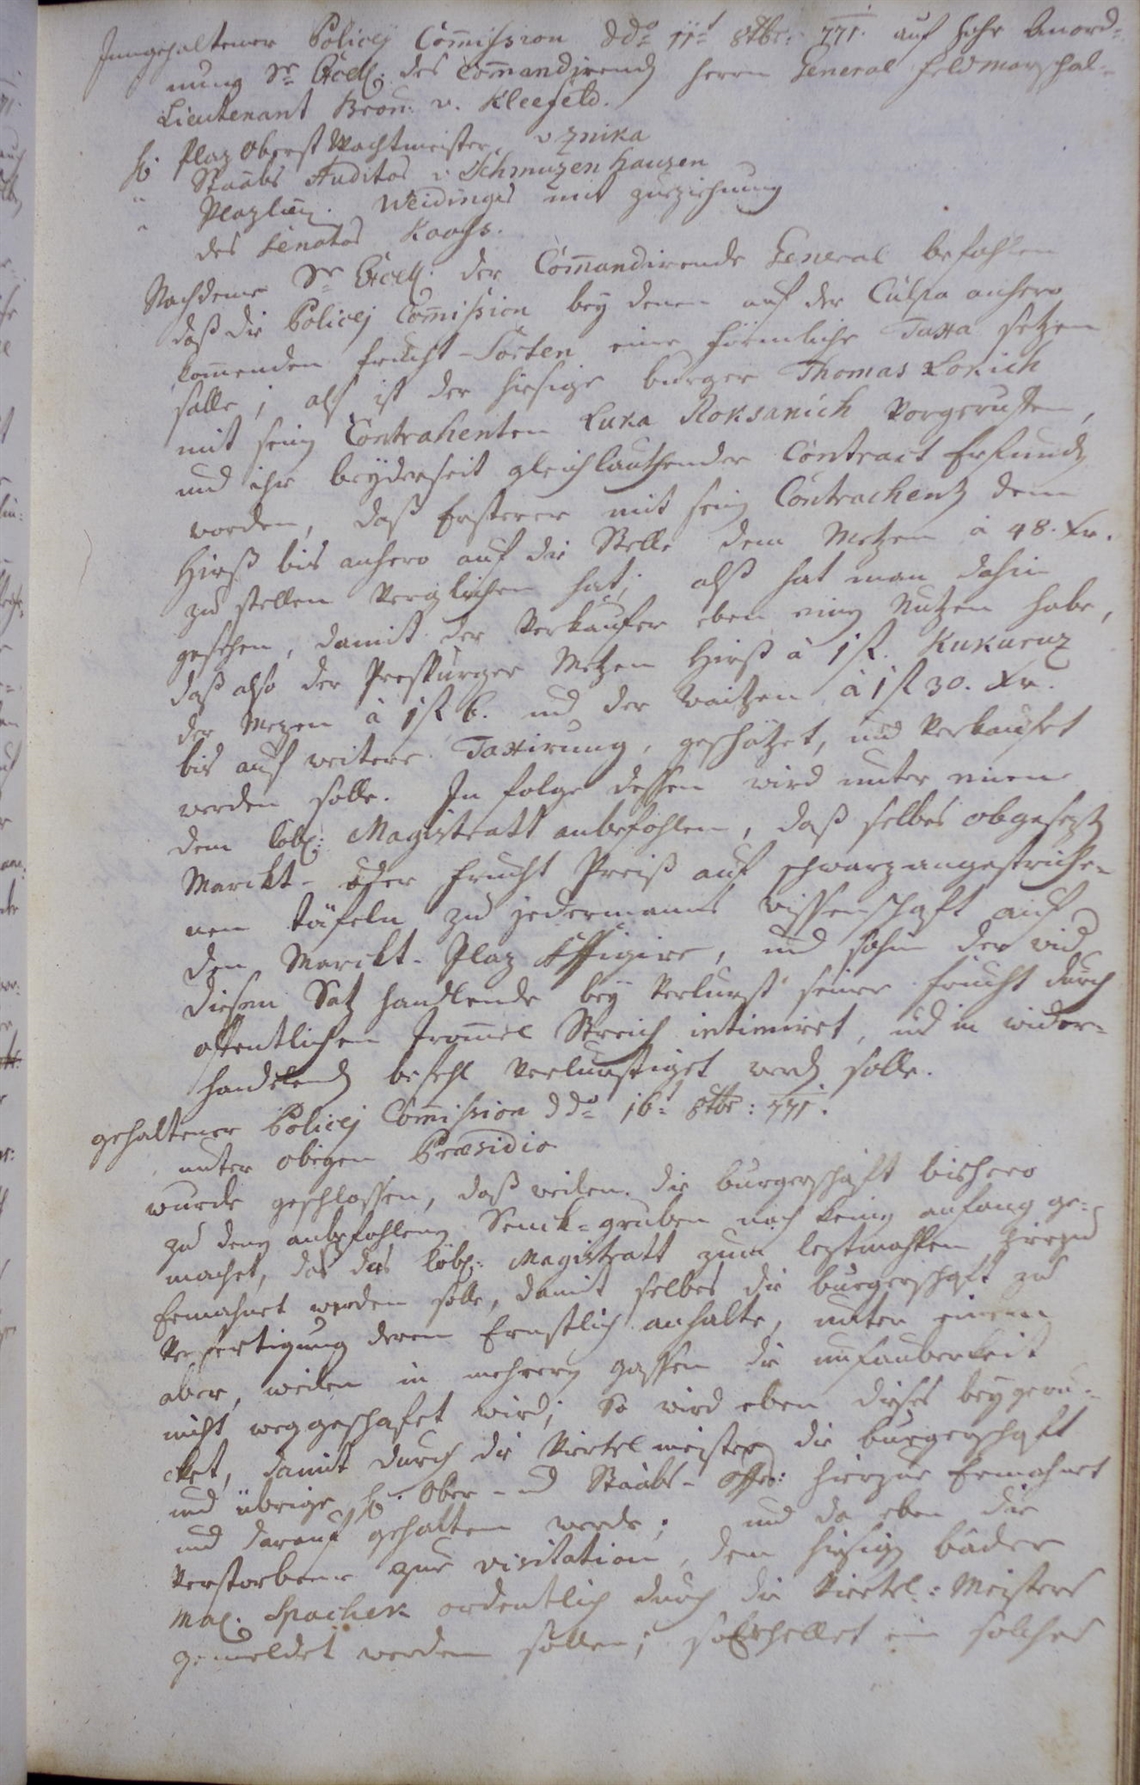 Inngehaltener Policej Com̄ission ddo 11t 8tbr: 771. auf hohe Anord=
nung Sr Excell. des Com̄andirend Herrn General Feldmarschal=
Lieutenant Baron v. Kleefeld.
H. Plaz Oberst Wachtmeister v
Staabs Auditor v. Schmuzenhausen
" Plazlieu. Weidinger mit Zuziehung
des Senators Kaags.
Nachdeme Sr Excell. der Com̄andirende General befohlen
daß die Policej Com̄ission bey denen auf der Culpa anhero
kom̄enden Frucht-Sorten eine förmliche Taxa setzen
solle; als ist der hiesige burger Thomas Lonich
mit sein Contrahenten Luka Roksanich Vorgeruffen,
und ihr beyderseit gleichlauthender Contract Erfunden
worden, daß Ersterer mit sein Contrachent den
Hirß bis anhero auf die Stelle dem Metzen à 48. Xr.
zu stellen Verglichen hat; alß hat man dahin
gesehen, damit der Verkaufer eben einen Nutzen habe,
daß also der Presspurger Metzen Hirß à 1 fl. Kukuruz
der Mezen à 1 fl 6. und der Waitzen à 1 fl 30. Xr.
bis auf weitere Taxirung, geschätzet, und Verkaufet
werden solle. In folge dessen wird unter einem
dem löbl: Magistratt anbefohlen, daß selbes obgesezt
Marckt- oder Frucht Preiß auf schwarz angestriche=
nen Täfeln zu jedermanns wissenschaft auf
den Marckt-Plaz Affigire, und sohin der wid
diesem Satz handlende bey Verlurst seiner Frucht durch
offentlichen Trom̄el Streich intimiret, und in wider=
handelend befehl Verlurstiget werd solle.
gehaltener Policej Com̄ission ddo 16t 8tbr: 771.
unter obigen Præsidio
wurde geschlossen, daß weilen die burgerschaft bishero
zu den anbefohlen Senck=gruben noch kein anfang ge=
machet, daß das löbl: Magistratt zum leztmahlen hierzu
Ermahnet werden solle, damit selbes die burgerschaft zu
Verfertigung deren Ernstlich anhalte, unter einem
aber, weilen in mehrern gassen die unsauberkeit
nicht weggeschafet wird; so wird eben dieses beygeru=
cket, damit durch die Viertelmeister die burgerschaft
und übrige H. Ober- und Staabs-Offrs: hierzue Ermahnet
und darauf gehalten werde; und da eben die
Verstorbene zur visitation, dem hiesig bader
Mal. Spachek ordentlich durch die Viertel: Meisters
gemeldet werden sollen; so ein solcher